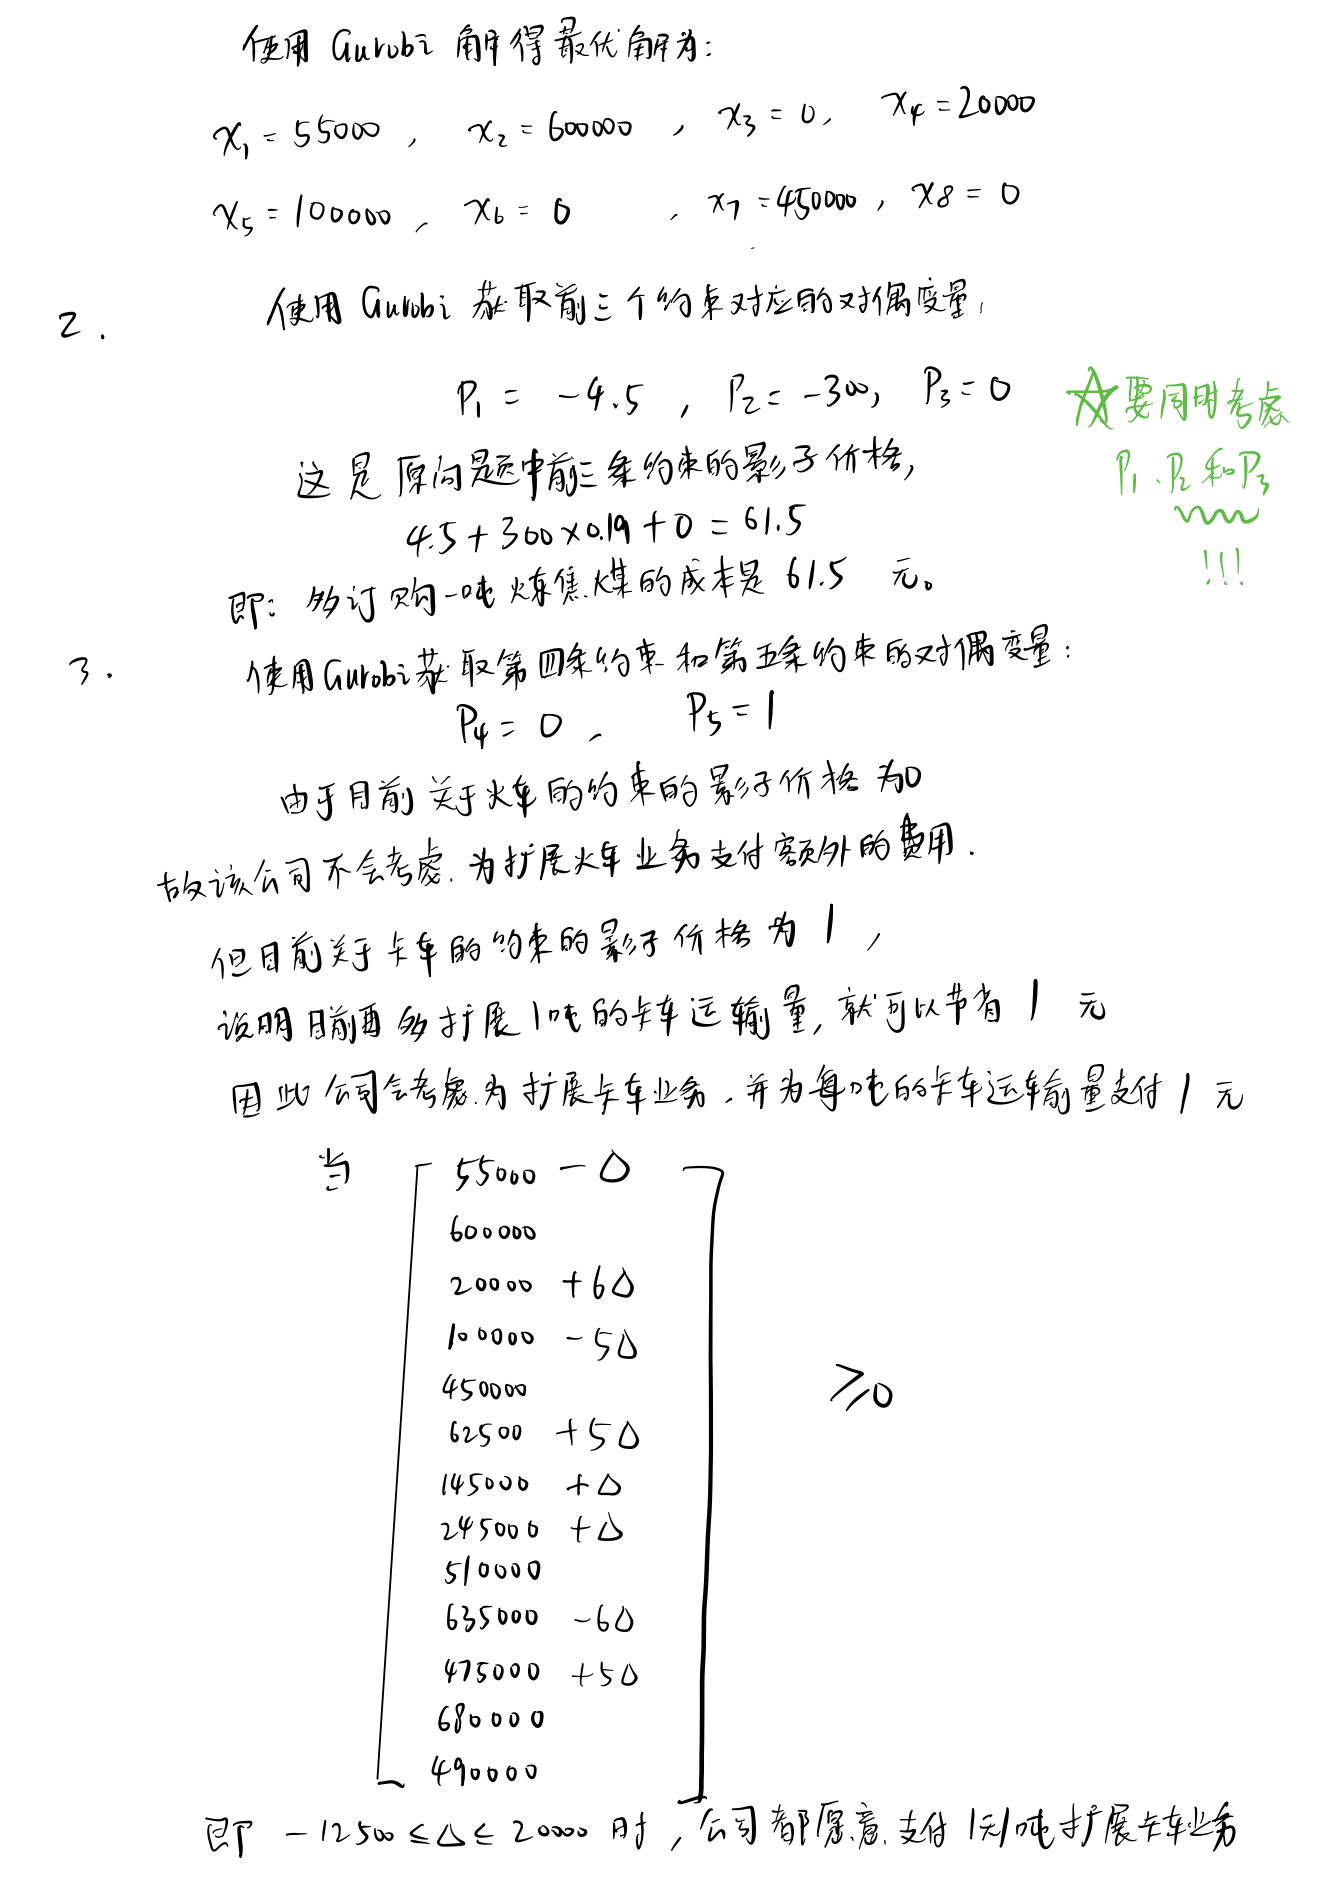 使用 Gurobi 解得最优解为:
x₁ = 55000 , x₂ = 600000 , x₃ = 0, x₄ = 20000
x₅ = 100000 , x₆ = 0 , x₇ = 450000 , x₈ = 0
2. 使用 Gurobi 获取前三个约束对应的对偶变量,
P₁ = -4.5 , P₂ = -300, P₃ = 0
☆要同时考虑
P₁、P₂和P₃
!!!
这是原问题中前三条约束的影子价格,
4.5 + 300×0.19 + 0 = 61.5
即: 多订购一吨炼焦煤的成本是 61.5 元。
3. 使用Gurobi获取第四条约束和第五条约束的对偶变量:
P₄ = 0 , P₅ = 1
由于目前关于火车的约束的影子价格为0
故该公司不会考虑为扩展火车业务支付额外的费用.
但目前关于卡车的约束的影子价格为 1 ,
说明目前再多扩展1吨的卡车运输量, 就可以节省 1 元
因此公司会考虑为扩展卡车业务, 并为每吨的卡车运输量支付 1 元
当
55000 - Δ
600000
20000 + 6Δ
100000 - 5Δ
450000
62500 + 5Δ
145000 + Δ
245000 + Δ
510000
635000 - 6Δ
475000 + 5Δ
680000
490000
≥0
即 -12500 ≤ Δ ≤ 20000 时, 公司都愿意支付 1元/吨扩展卡车业务